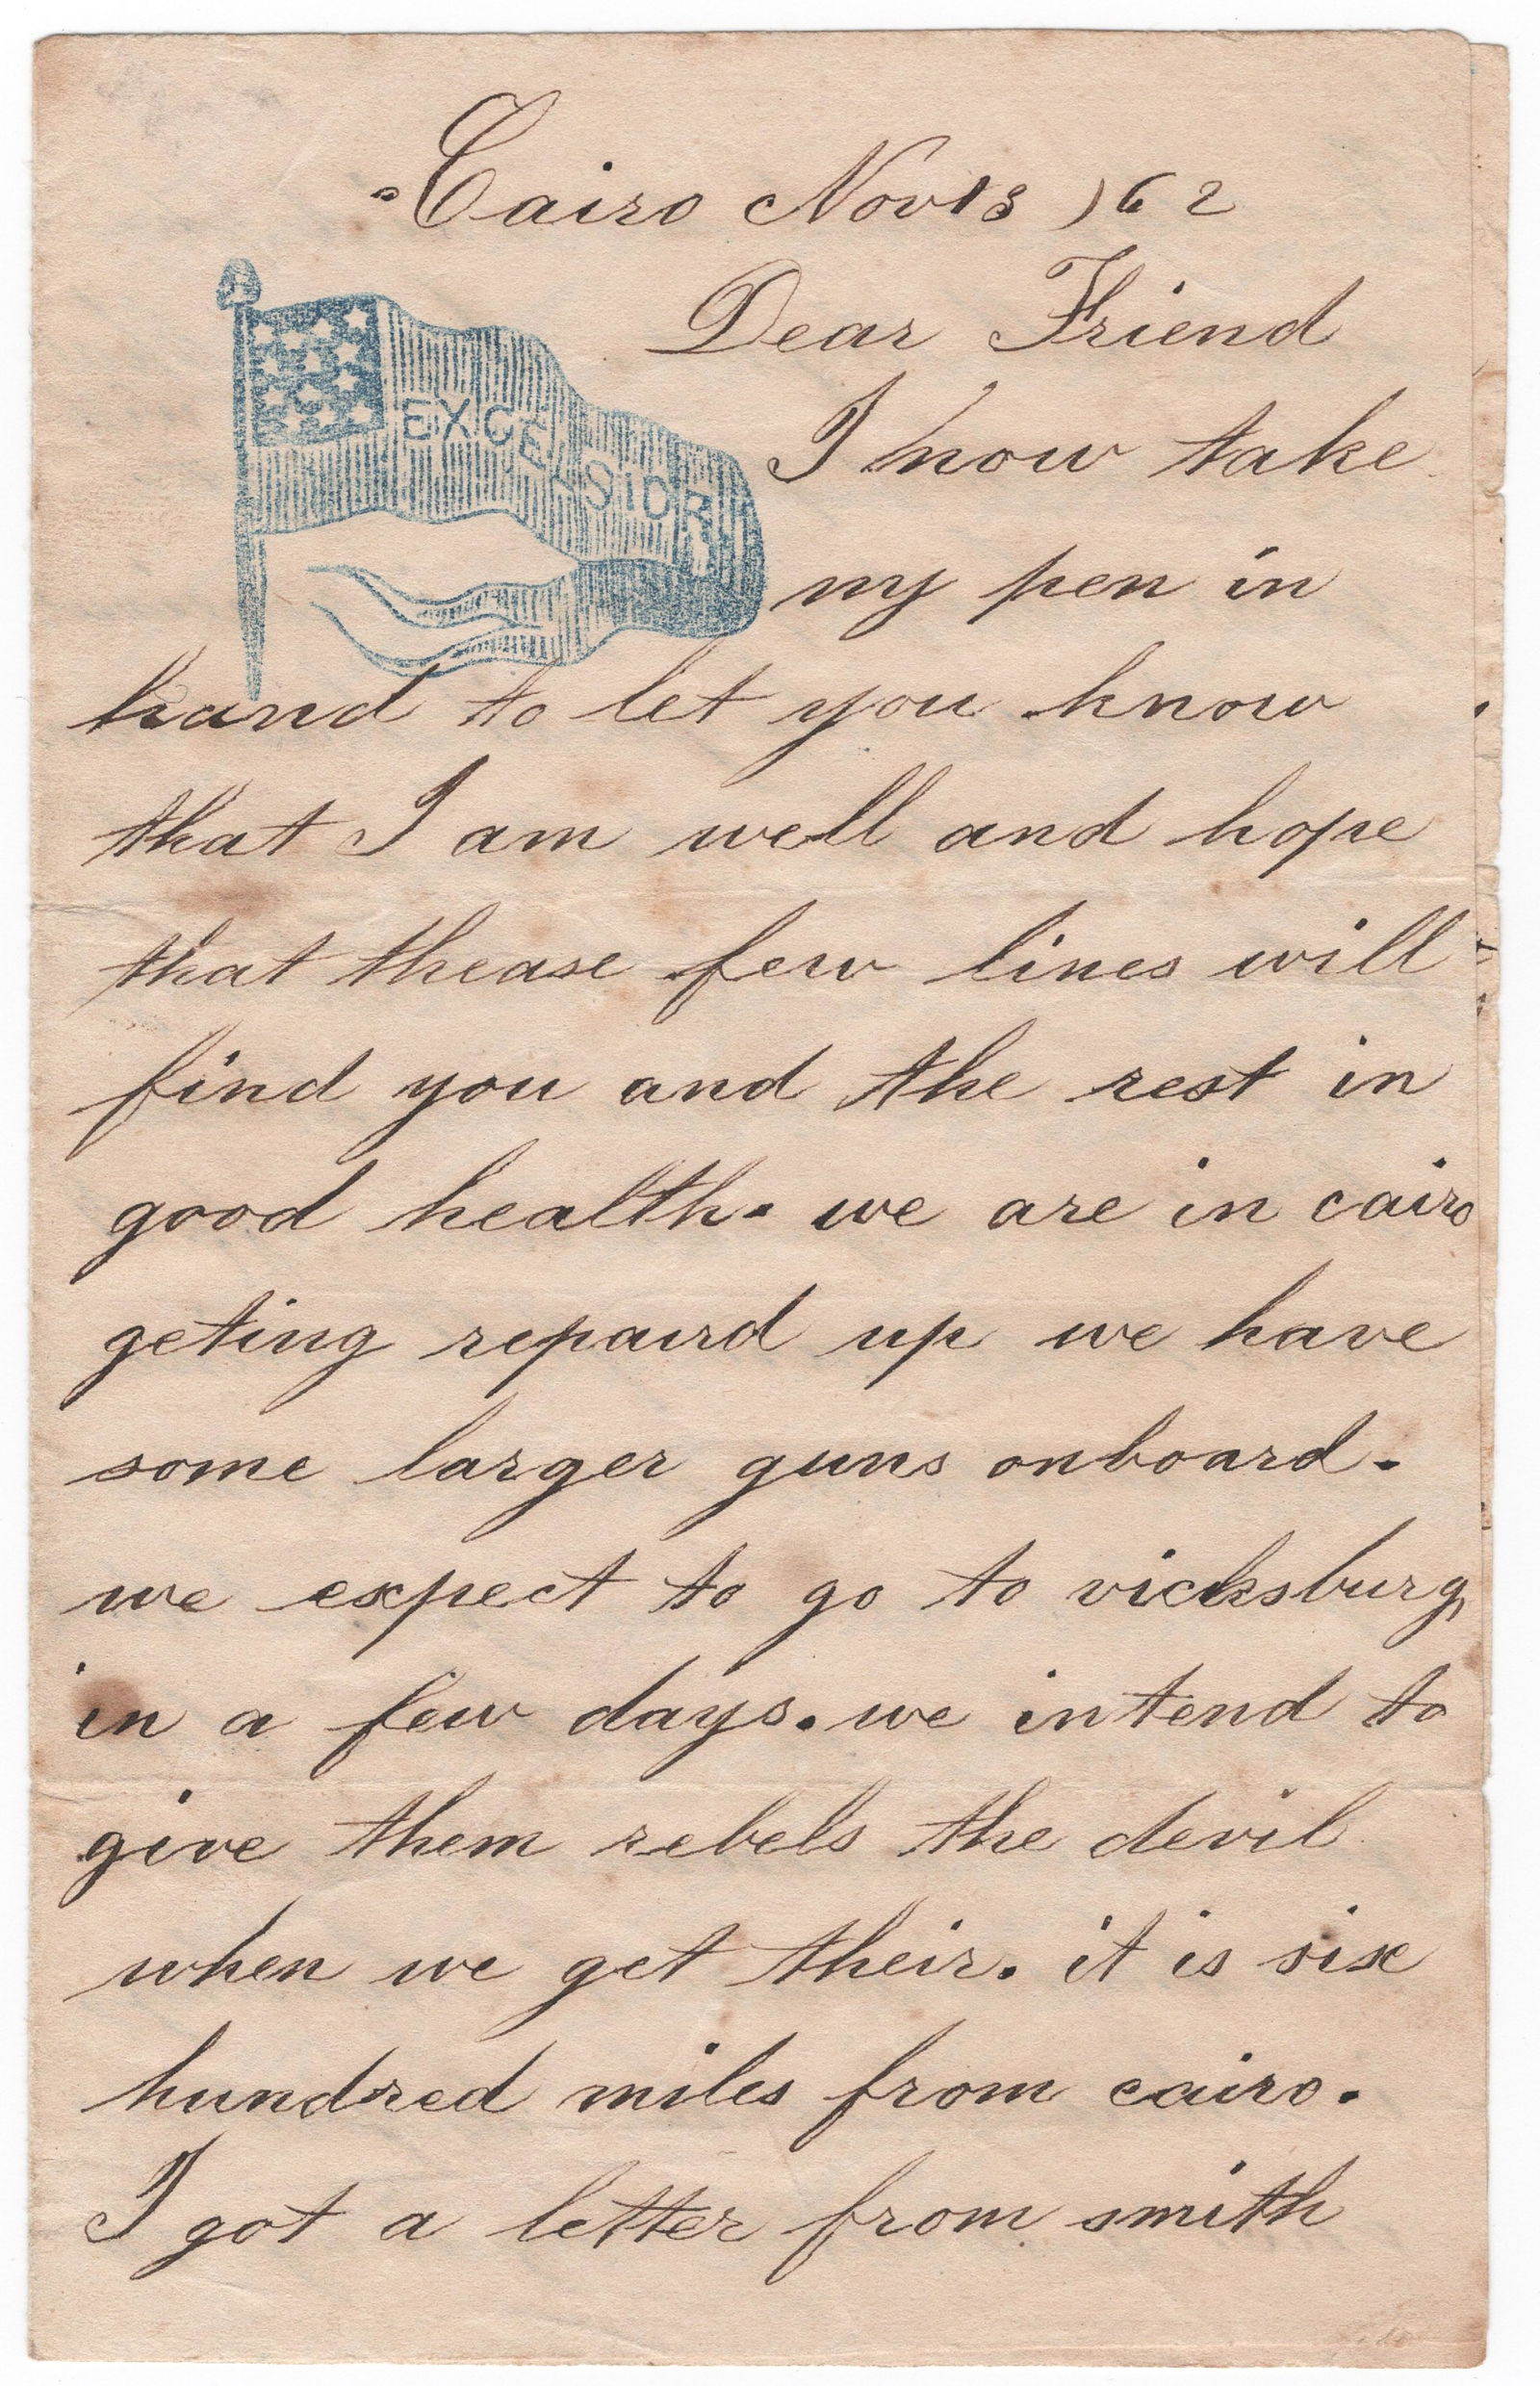 Cairo Nov 13 )62
Dear Friend
EXCELSIOR
I now take
my pen in
hand to let you know
that I am well and hope
that thease few lines will
find you and the rest in
good health. we are in cairo
geting repaird up we have
some larger guns onboard.
we expect to go to vicksburg
in a few days. we intend to
give them rebels the devil
when we get their. it is six
hundred miles from cairo.
I got a letter from smith